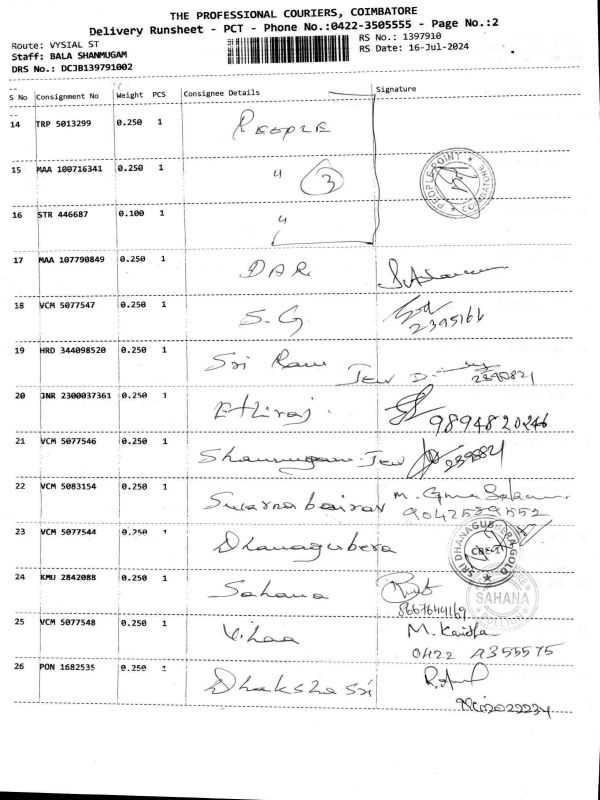 THE PROFESSIONAL COURIERS, COIMBATORE
Delivery Runsheet - PCT - Phone No.:0422-3505555 - Page No.:2
Route: VYSIAL ST
RS No.: 1397910
Staff: BALA SHANMUGAM
RS Date: 16-Jul-2024
DRS No.: DCJB139791002
S No Consignment No Weight PCS Consignee Details Signature
14 TRP 5013299 0.250 1 PEOPLE
15 MAA 100716341 0.250 1 " 3 PEOPLE POINT
16 STR 446687 0.100 1 "
17 MAA 107790849 0.250 1 DAR
18 VCM 5077547 0.250 1 S.G
2395166
19 HRD 344098520 0.250 1 Sri Ram Jew
2390821
20 JNR 2300037361 0.250 1 Ethiraj.
9894820246
21 VCM 5077546 0.250 1 Shanmugam Jew
22 VCM 5083154 0.250 1 Swarna bairav M.
9042539552
23 VCM 5077544 0.250 1 Dhanagubera
SRI DHANAGUBERA GOLD
CBE-1
24 KMU 2842088 0.250 1 Sahana
SAHANA
8667644169
25 VCM 5077548 0.250 1 M.
0422 4355575
26 PON 1682535 0.250 1 Dhaksha Sri